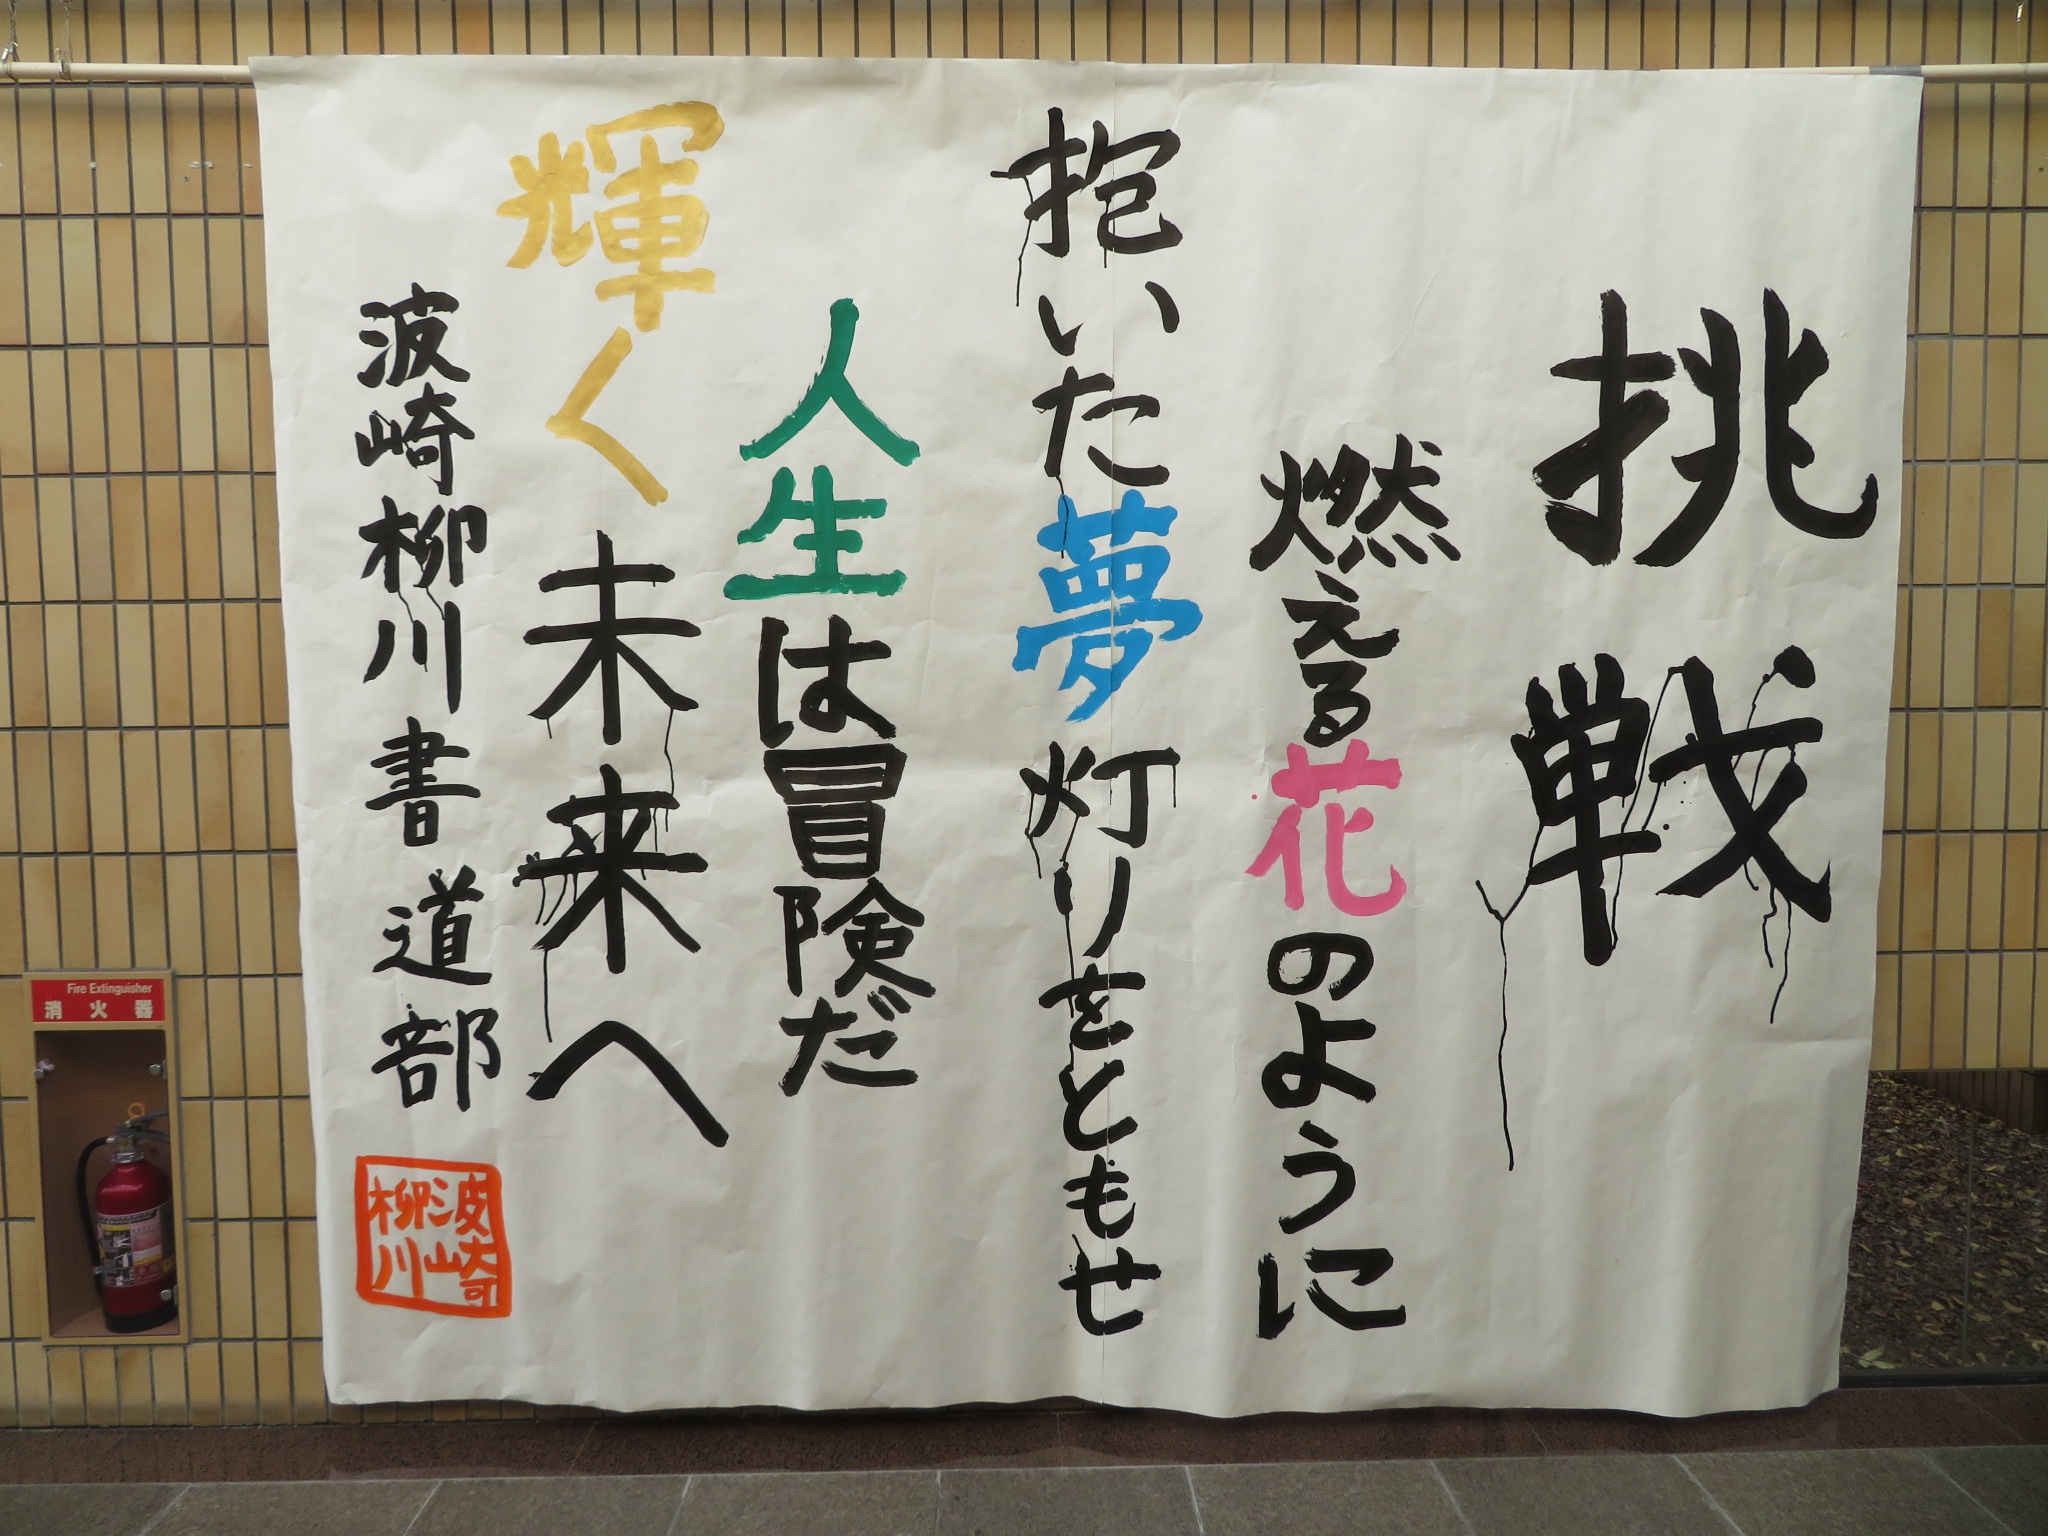 挑戦
燃える花のように
抱いた夢灯りをともせ
人生は冒険だ
輝く未来へ
波崎柳川書道部
波崎
柳川
Fire Extinguisher
消火器